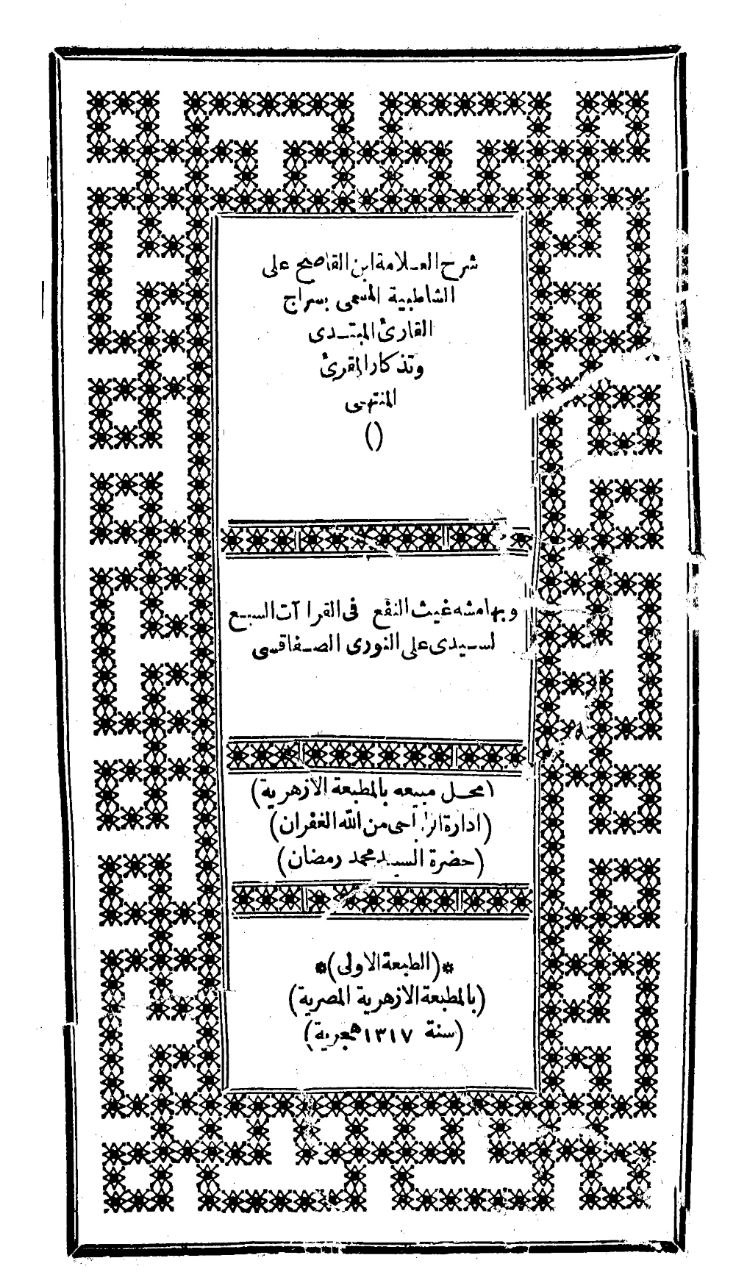 شرح العلامة ابن القاصح على
الشاطبية المسمى بسراج
القارئ المبتدى
وتذكار المقرئ
المنتهى
()
وبهامشه غيث النفع فى القراآت السبع
لسيدى على النورى الصفاقسى
(محل مبيعه بالمطبعة الازهرية)
(ادارة الراجى من الله الغفران)
(حضرة السيد محمد رمضان)
*(الطبعة الاولى)*
(بالمطبعة الازهرية المصرية)
(سنة ١٣١٧ هجرية)